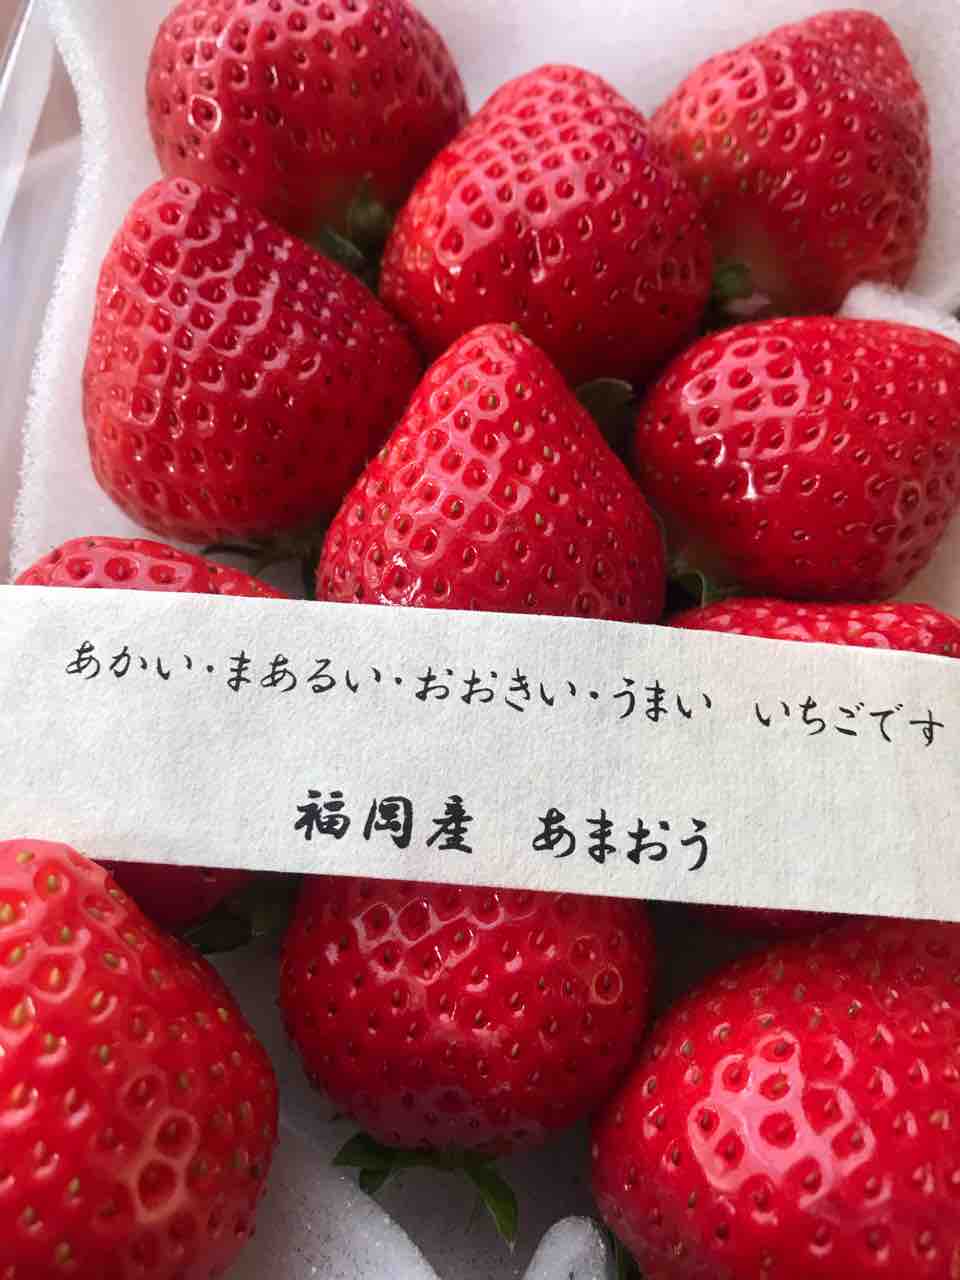 あかい・まあるい・おおきい・うまい　いちごです
福岡産　あまおう